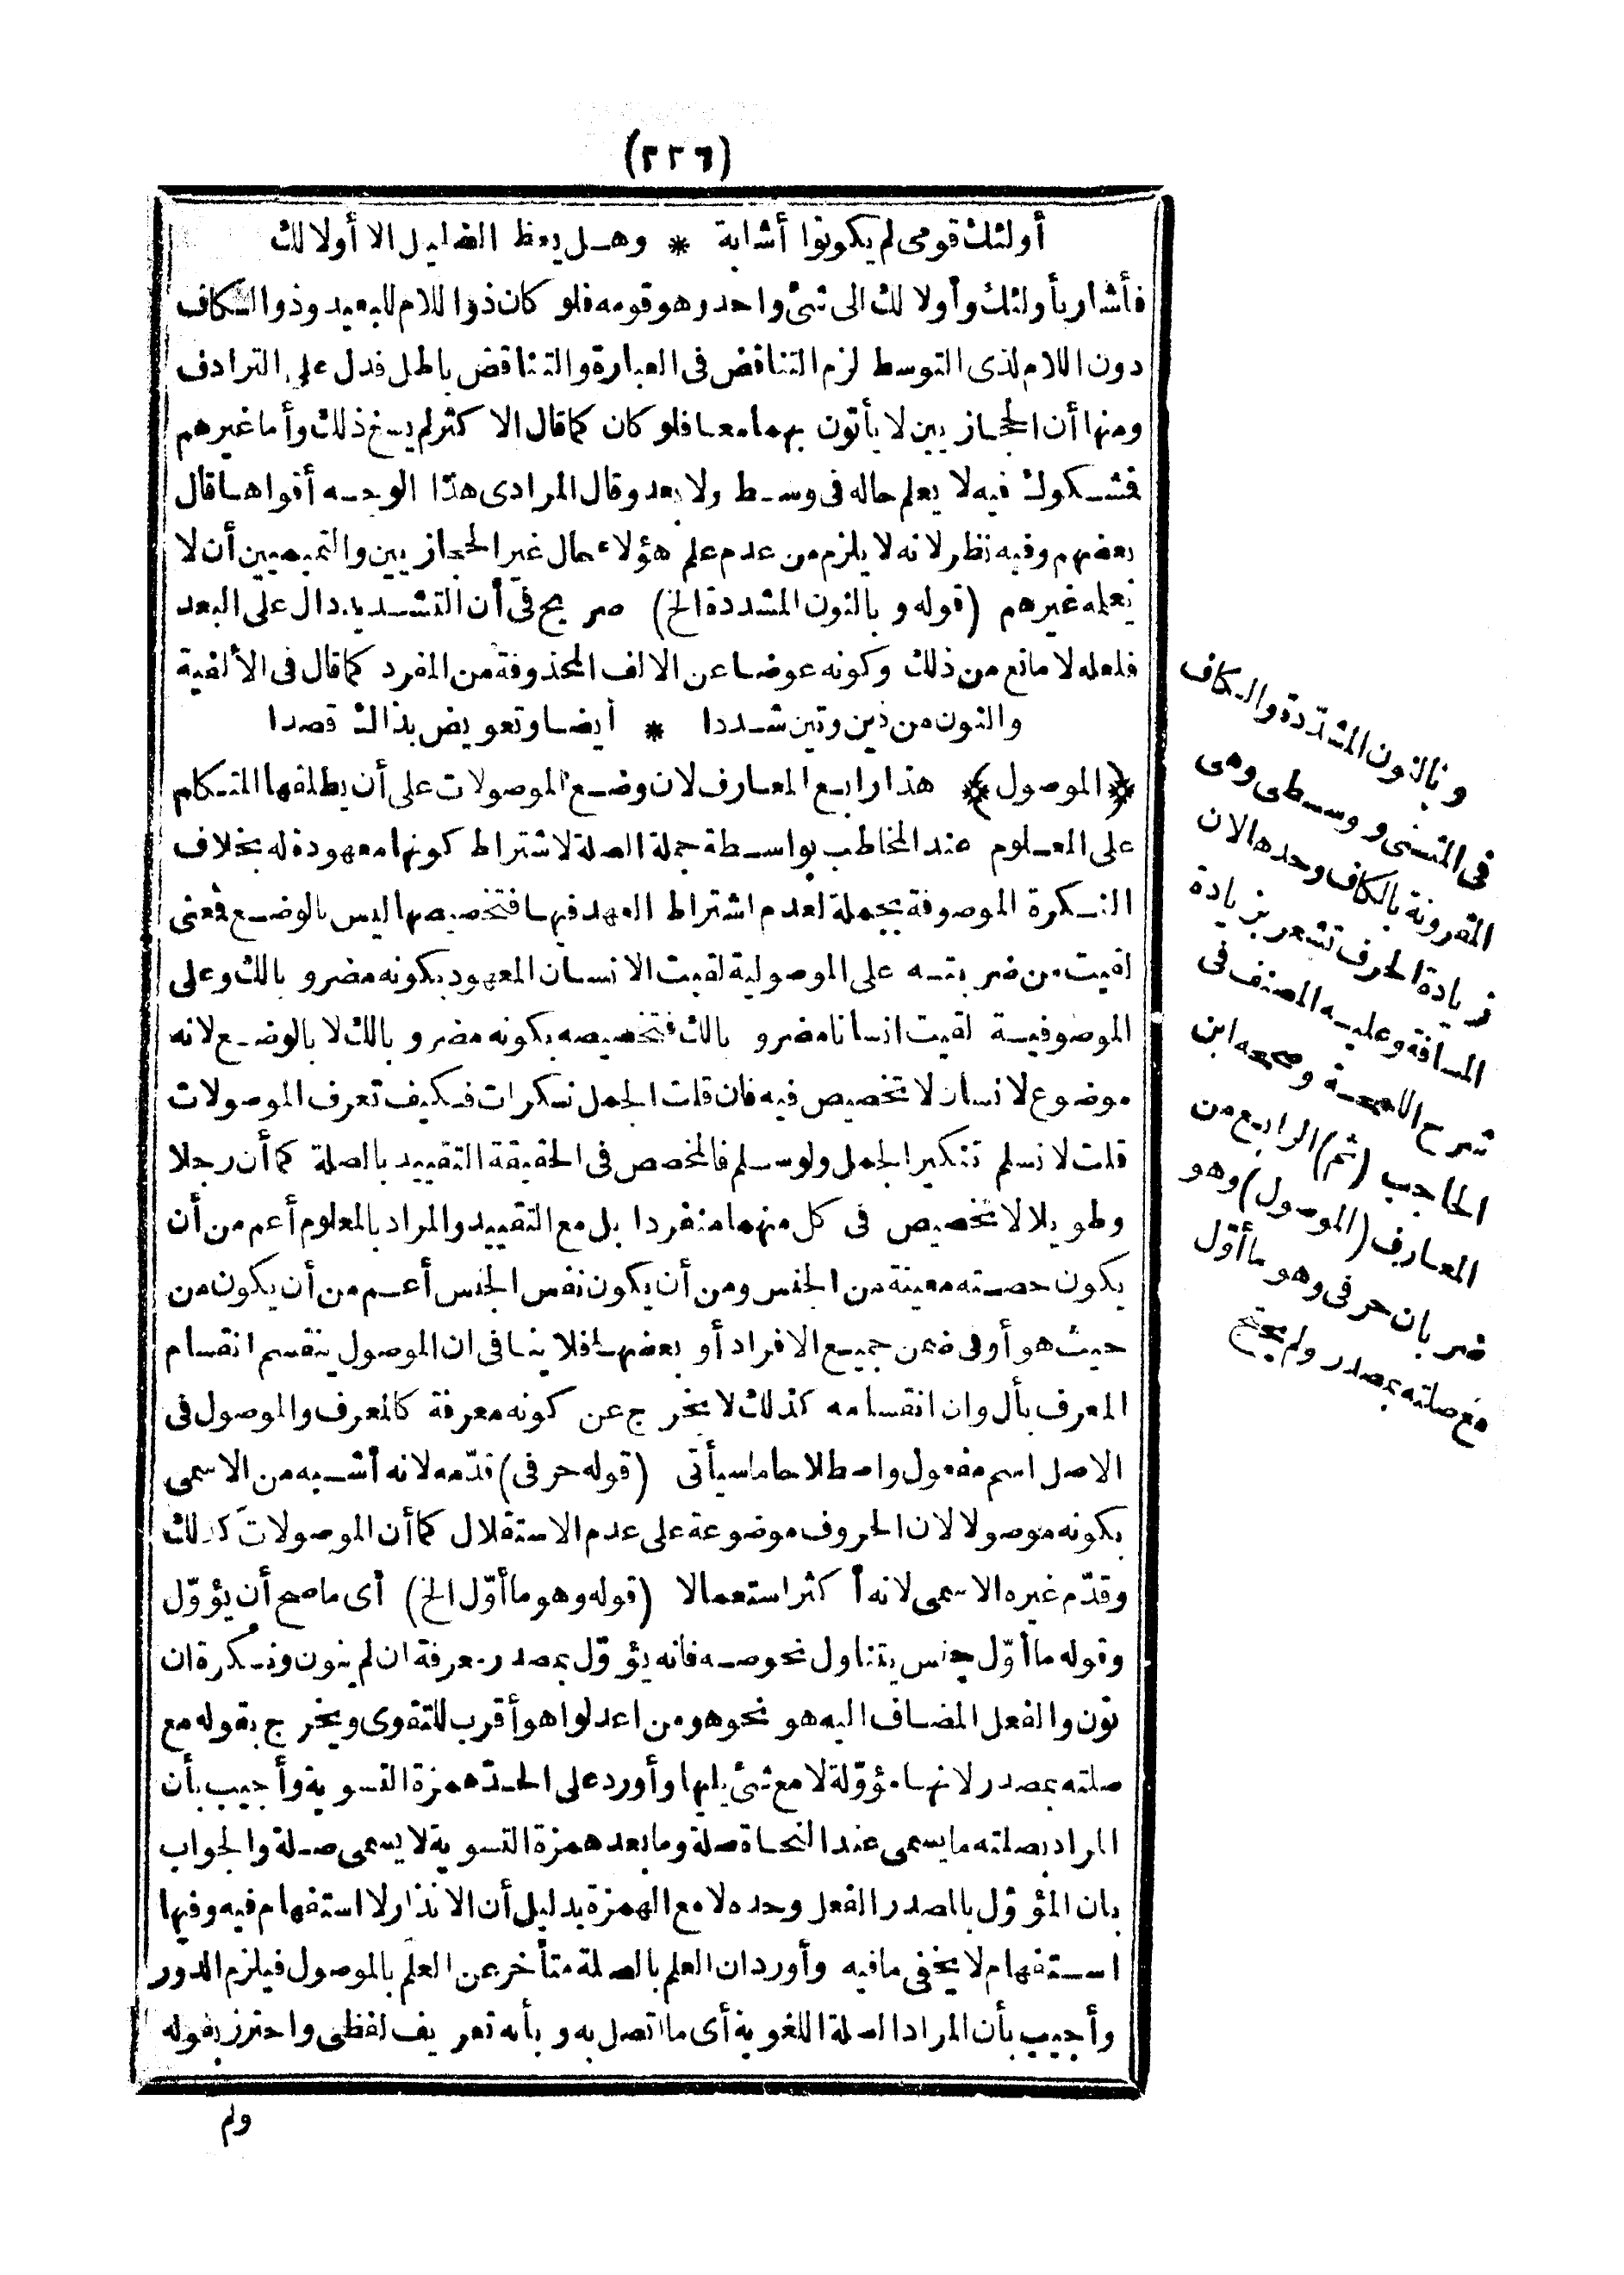 (٢٢٦)
أولئك قومى لم يكونوا أشابة * وهل يعظ الضليل الا أولالك
فأشار بأولئك وأولالك الى شئ واحد وهو قومه فلو كان ذو اللام للبعيد وذو الكاف
دون اللام لذى التوسط لزم التناقض فى العبارة والتناقض باطل فدل على الترادف
ومنها أن الحجازيين لا يأتون بهما معا فلو كان كما قال الاكثر لم يسغ ذلك وأما غيرهم
فمشكوك فيه لا يعلم حاله فى وسط ولا بعد وقال المرادى هذا الوجه أقواها قال
بعضهم وفيه نظر لانه لا يلزم من عدم علم هؤلاء حال غير الحجازيين والتميميين أن لا
يعلمه غيرهم (قوله وبالنون المشددة الخ) صريح فى أن التشديد دال على البعد
فلعله لا مانع من ذلك وكونه عوضا عن الالف المحذوفة من المفرد كما قال فى الألفية
والنون من ذين وتين شددا * أيضا وتعويض بذاك قصدا
﴿الموصول﴾ هذا رابع المعارف لان وضع الموصولات على أن يطلقها المتكلم
على المعلوم عند المخاطب بواسطة جملة الصلة لاشتراط كونها معهودة له بخلاف
النكرة الموصوفة بجملة لعدم اشتراط العهد فيها فتخصيصها ليس بالوضع فمعنى
لقيت من ضربته على الموصولية لقيت الانسان المعهود بكونه مضروبا لك وعلى
الموصوفية لقيت انسانا مضروبا لك فتخصيصه بكونه مضروبا لك لا بالوضع لانه
موضوع لانسان لا تخصيص فيه فان قلت الجمل نكرات فكيف تعرف الموصولات
قلت لا نسلم تنكير الجمل ولو سلم فالمخصص فى الحقيقة التقييد بالصلة كما أن رجلا
وطويلا لا تخصيص فى كل منهما منفردا بل مع التقييد والمراد بالمعلوم أعم من أن
يكون حصته معينة من الجنس ومن أن يكون نفس الجنس أعم من أن يكون من
حيث هو أو فى ضمن جميع الافراد أو بعضها فلا ينافى ان الموصول ينقسم انقسام
المعرف بأل وان انقسامه كذلك لا يخرج عن كونه معرفة كالمعرف والموصول فى
الاصل اسم مفعول واصطلاحا ما سيأتى (قوله حرفى) قدّمه لانه أشبه من الاسمى
بكونه موصولا لان الحروف موضوعة على عدم الاستقلال كما أن الموصولات كذلك
وقدّم غيره الاسمى لانه أكثر استعمالا (قوله وهو ما أوّل الخ) أى ما صح أن يؤوّل
وقوله ما أوّل جنس يتناول نحو صه فانه يؤوّل بمصدر معرفة ان لم ينون ونكرة ان
نون والفعل المضاف اليه هو نحو هو من اعدلوا هو أقرب للتقوى ويخرج بقوله مع
صلته بمصدر لانها مؤوّلة لا مع شئ يليها وأورد على الحدّ همزة التسوية وأجيب بأن
المراد بصلته ما يسمى عند النحاة صلة وما بعد همزة التسوية لا يسمى صلة والجواب
بان المؤوّل بالمصدر الفعل وحده لا مع الهمزة بدليل أن الانذار لا استفهام فيه وفيها
استفهام لا يخفى ما فيه وأورد ان العلم بالصلة متأخر عن العلم بالموصول فيلزم الدور
وأجيب بأن المراد الصلة اللغوية أى ما اتصل به وبأنه تعريف لفظى واحترز بقوله
ولم
وبالنون المشدّدة والكاف
فى المثنى ووسطى وهى
المقرونة بالكاف وحدها لان
زيادة الحرف تشعر بزيادة
المسافة وعليه المصنف فى
شرح اللمحة وصححه ابن
الحاجب (ثم) الرابع من
المعارف (الموصول) وهو
ضربان حرفى وهو ما أوّل
مع صلته بمصدر ولم يحتج